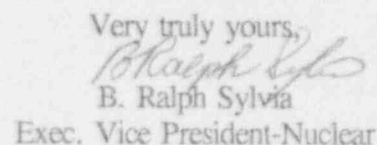 Very truly yours,
B Ralph Sylvia
B. Ralph Sylvia
Exec. Vice President-Nuclear